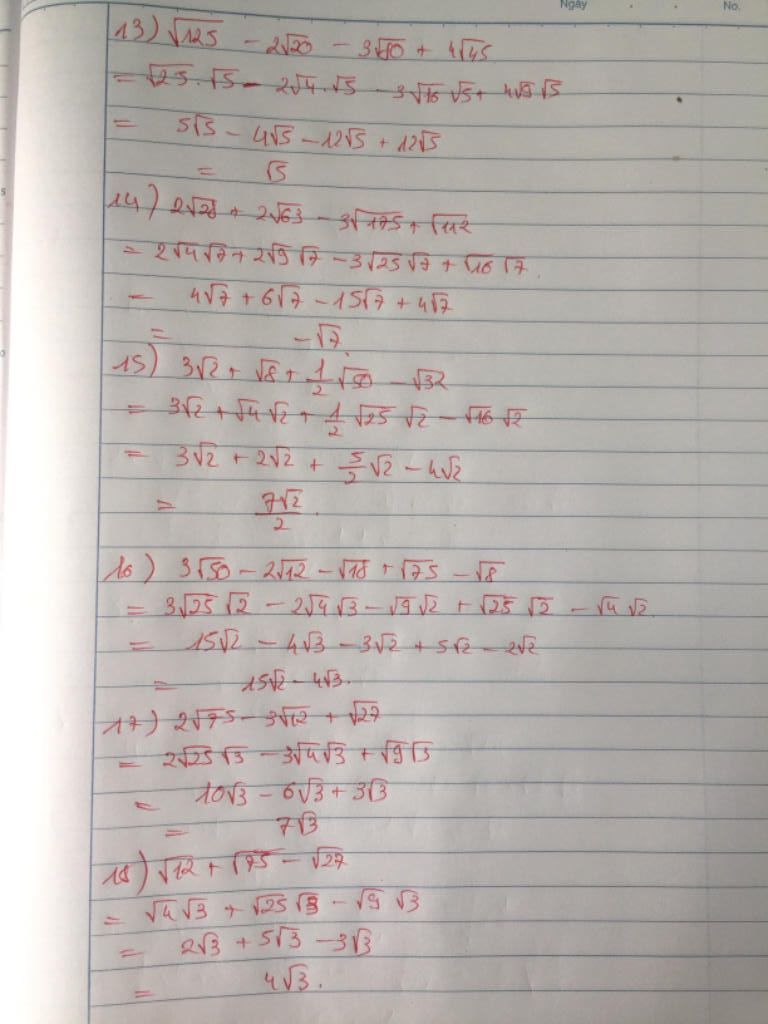 Ngày No.
13) √125 - 2√20 - 3√80 + 4√45
= √25.√5 - 2√4.√5 - 3√16 √5 + 4√9 √5
= 5√5 - 4√5 - 12√5 + 12√5
= √5
14) 2√28 + 2√63 - 3√175 + √112
= 2√4 √7 + 2√9 √7 - 3√25 √7 + √16 √7.
= 4√7 + 6√7 - 15√7 + 4√7
= -√7.
15) 3√2 + √8 + 1/2 √50 - √32
= 3√2 + √4 √2 + 1/2 √25 √2 - √16 √2
= 3√2 + 2√2 + 5/2 √2 - 4√2
= 7√2/2.
16) 3√50 - 2√12 - √18 + √75 - √8
= 3√25 √2 - 2√4 √3 - √9 √2 + √25 √2 - √4 √2
= 15√2 - 4√3 - 3√2 + 5√2 - 2√2
= 15√2 - 4√3.
17) 2√75 - 3√12 + √27
= 2√25 √3 - 3√4 √3 + √9 √3
= 10√3 - 6√3 + 3√3
= 7√3
18) √12 + √75 - √27
= √4 √3 + √25 √3 - √9 √3
= 2√3 + 5√3 - 3√3
= 4√3.